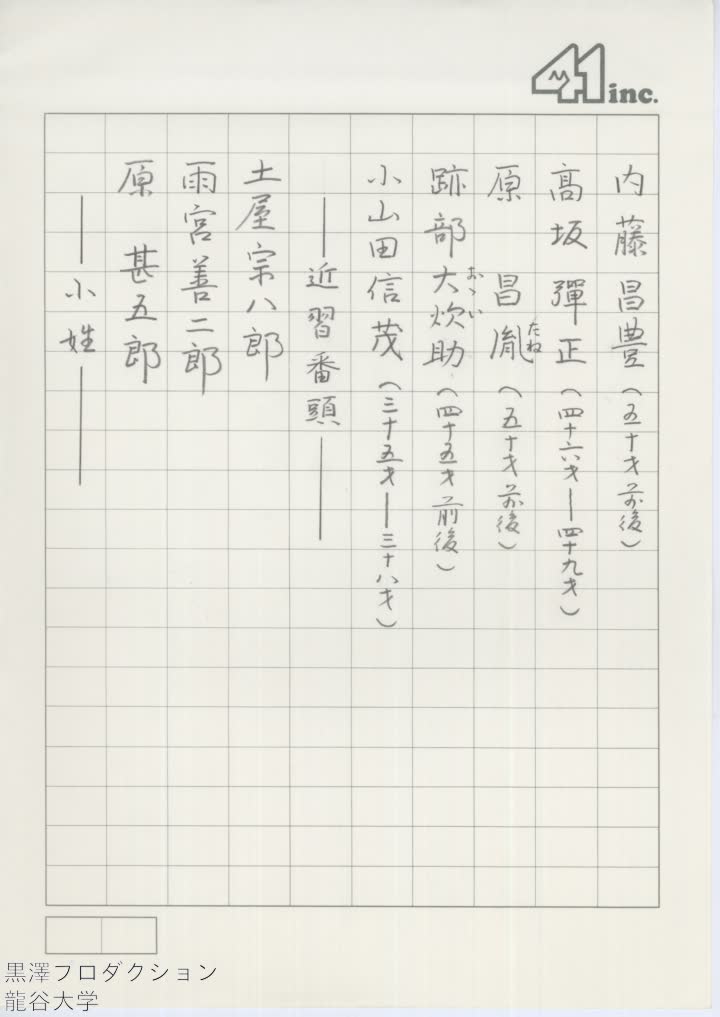 41 inc.
内藤昌豊(五十才前後)
高坂彈正(四十六才—四十九才)
原 昌胤(五十才前後)
たね
跡部大炊助(四十五才前後)
おゝい
小山田信茂(三十五才—三十八才)
——近習番頭——
土屋宗八郎
雨宮善二郎
原 甚五郎
——小姓——
黒澤プロダクション
龍谷大学